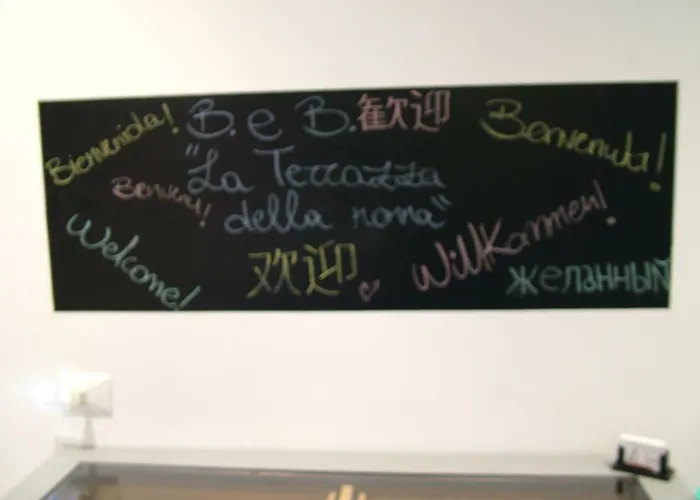 Bienvenida!
B. e B.
歓迎
Benvenuti!
"La Terrazza
della nona"
Welcome!
欢迎
Willkommen!
желанный